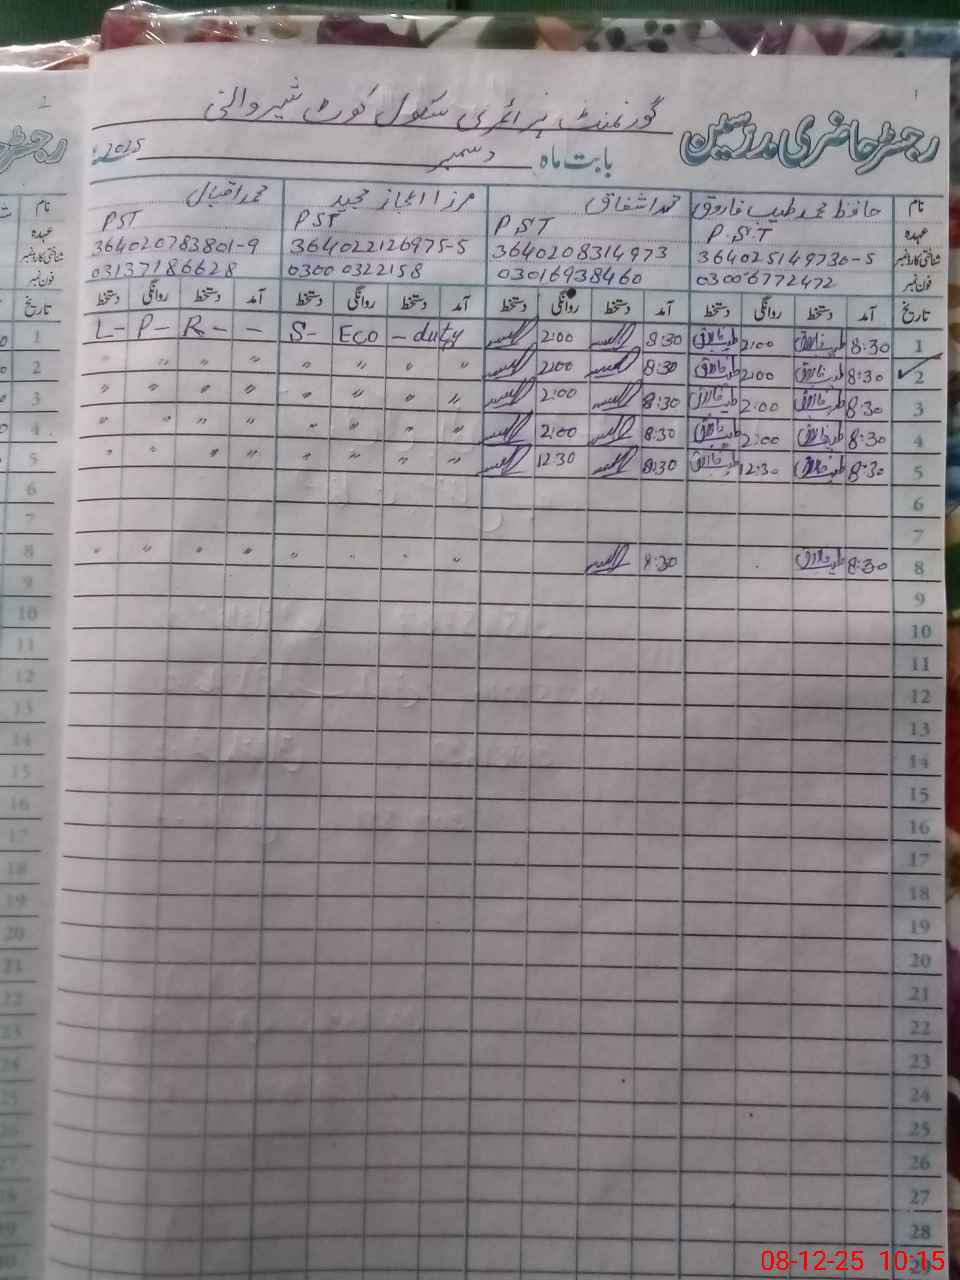 رجسٹر حاضری مدرسین
گورنمنٹ پرائمری سکول کوٹ شیر والی
بابت ماہ دسمبر 2025ء
نام حافظ محمد طیب فاروق محمد اشفاق مرزا اعجاز مجید محمد اقبال
عہدہ P.S.T P.S.T PST PST
شناختی کارڈ نمبر 364025149730-5 3640208314973 364022126975-5 364020783801-9
فون نمبر 03006772472 03016938460 0300 0322158 03137186628
تاریخ آمد دستخط روانگی دستخط آمد دستخط روانگی دستخط آمد دستخط روانگی دستخط آمد دستخط روانگی دستخط
1 8:30 طیب فاروق 2:00 طیب فاروق 8:30 2:00 S- Eco - duty L - P - R - -
2 8:30 طیب فاروق 2:00 طیب فاروق 8:30 2:00 " " " " " " " "
3 8:30 طیب فاروق 2:00 طیب فاروق 8:30 2:00 " " " " " " " "
4 8:30 طیب فاروق 2:00 طیب فاروق 8:30 2:00 " " " " " " " "
5 8:30 طیب فاروق 12:30 طیب فاروق 8:30 12:30 " " " " " " " "
6
7
8 8:30 طیب فاروق 8:30 " " " " " " " "
9
10
11
12
13
14
15
16
17
18
19
20
21
22
23
24
25
26
27
28
29
08-12-25 10:15